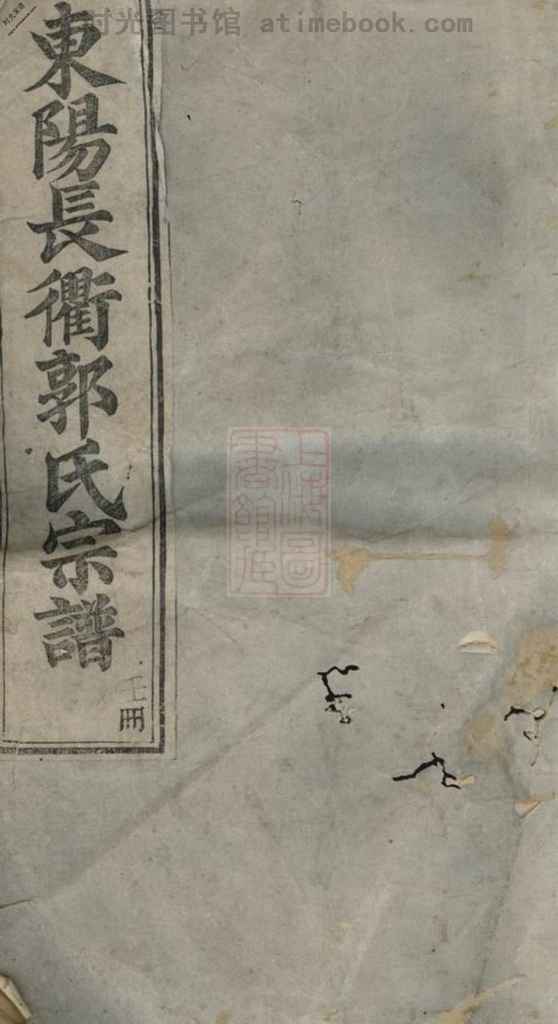 时光图书馆 atimebook.com
東陽長衢郭氏宗譜
冊